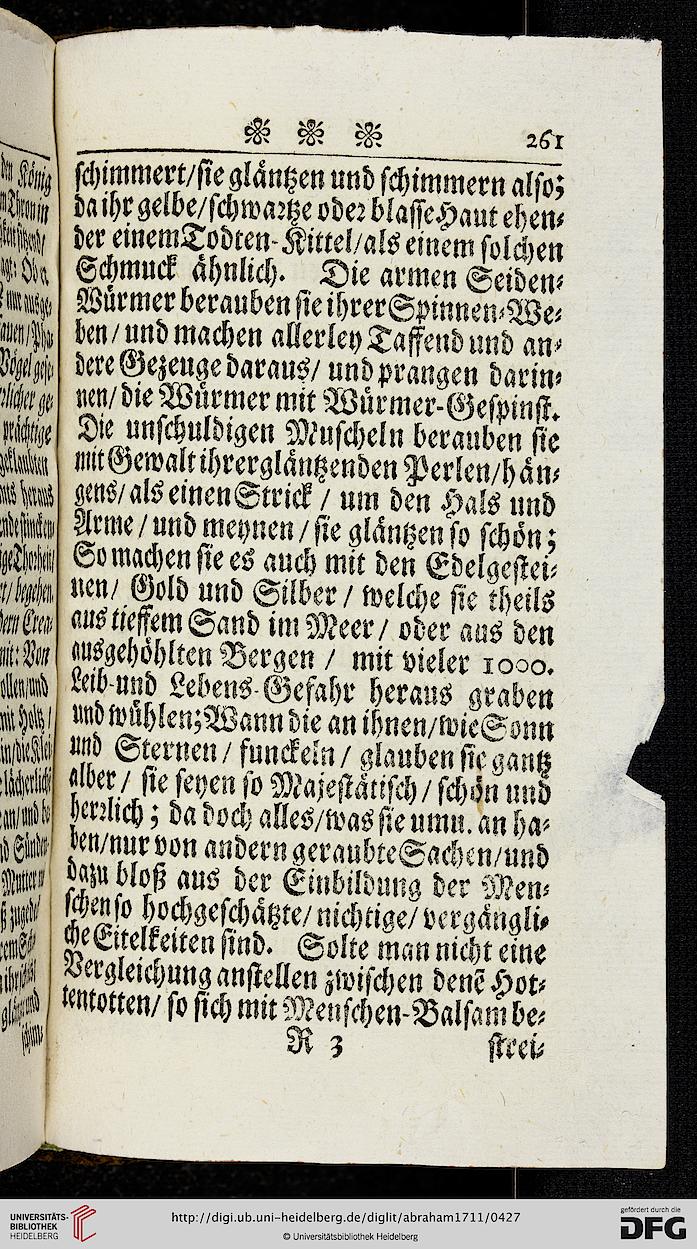 261
schimmert/sie gläntzen und schimmern also;
da ihr gelbe/schwartze oder blasse Haut ehen⸗
der einem Todten-Kittel/als einem solchen
Schmuck ähnlich. Die armen Seiden⸗
Würmer berauben sie ihrer Spinnen⸗We⸗
ben/ und machen allerley Taffend und an⸗
dere Gezeuge daraus/ und prangen darin⸗
nen/ die Würmer mit Würmer-Gespinst.
Die unschuldigen Muscheln berauben sie
mit Gewalt ihrer gläntzenden Perlen/hän⸗
gens/ als einen Strick / um den Hals und
Arme / und meynen / sie gläntzen so schön;
So machen sie es auch mit den Edelgestei⸗
nen/ Gold und Silber / welche sie theils
aus tieffem Sand im Meer / oder aus den
ausgehöhlten Bergen / mit vieler 1000.
Leib-und Lebens-Gefahr heraus graben
und wühlen; Wann die an ihnen/wie Sonn
und Sternen / funckeln / glauben sie gantz
alber / sie seyen so Majestätisch / schön und
herrlich; da doch alles/was sie um u. an ha⸗
ben/nur von andern geraubte Sachen/und
dazu bloß aus der Einbildung der Men⸗
schen so hochgeschätzte/ nichtige/ vergängli⸗
che Eitelkeiten sind. Solte man nicht eine
Vergleichung anstellen zwischen denē Hot⸗
tentotten/ so sich mit Menschen-Balsam be⸗
R 3 strei⸗
UNIVERSITÄTS-
BIBLIOTHEK
HEIDELBERG
http://digi.ub.uni-heidelberg.de/diglit/abraham1711/0427
© Universitätsbibliothek Heidelberg
gefördert durch die
DFG